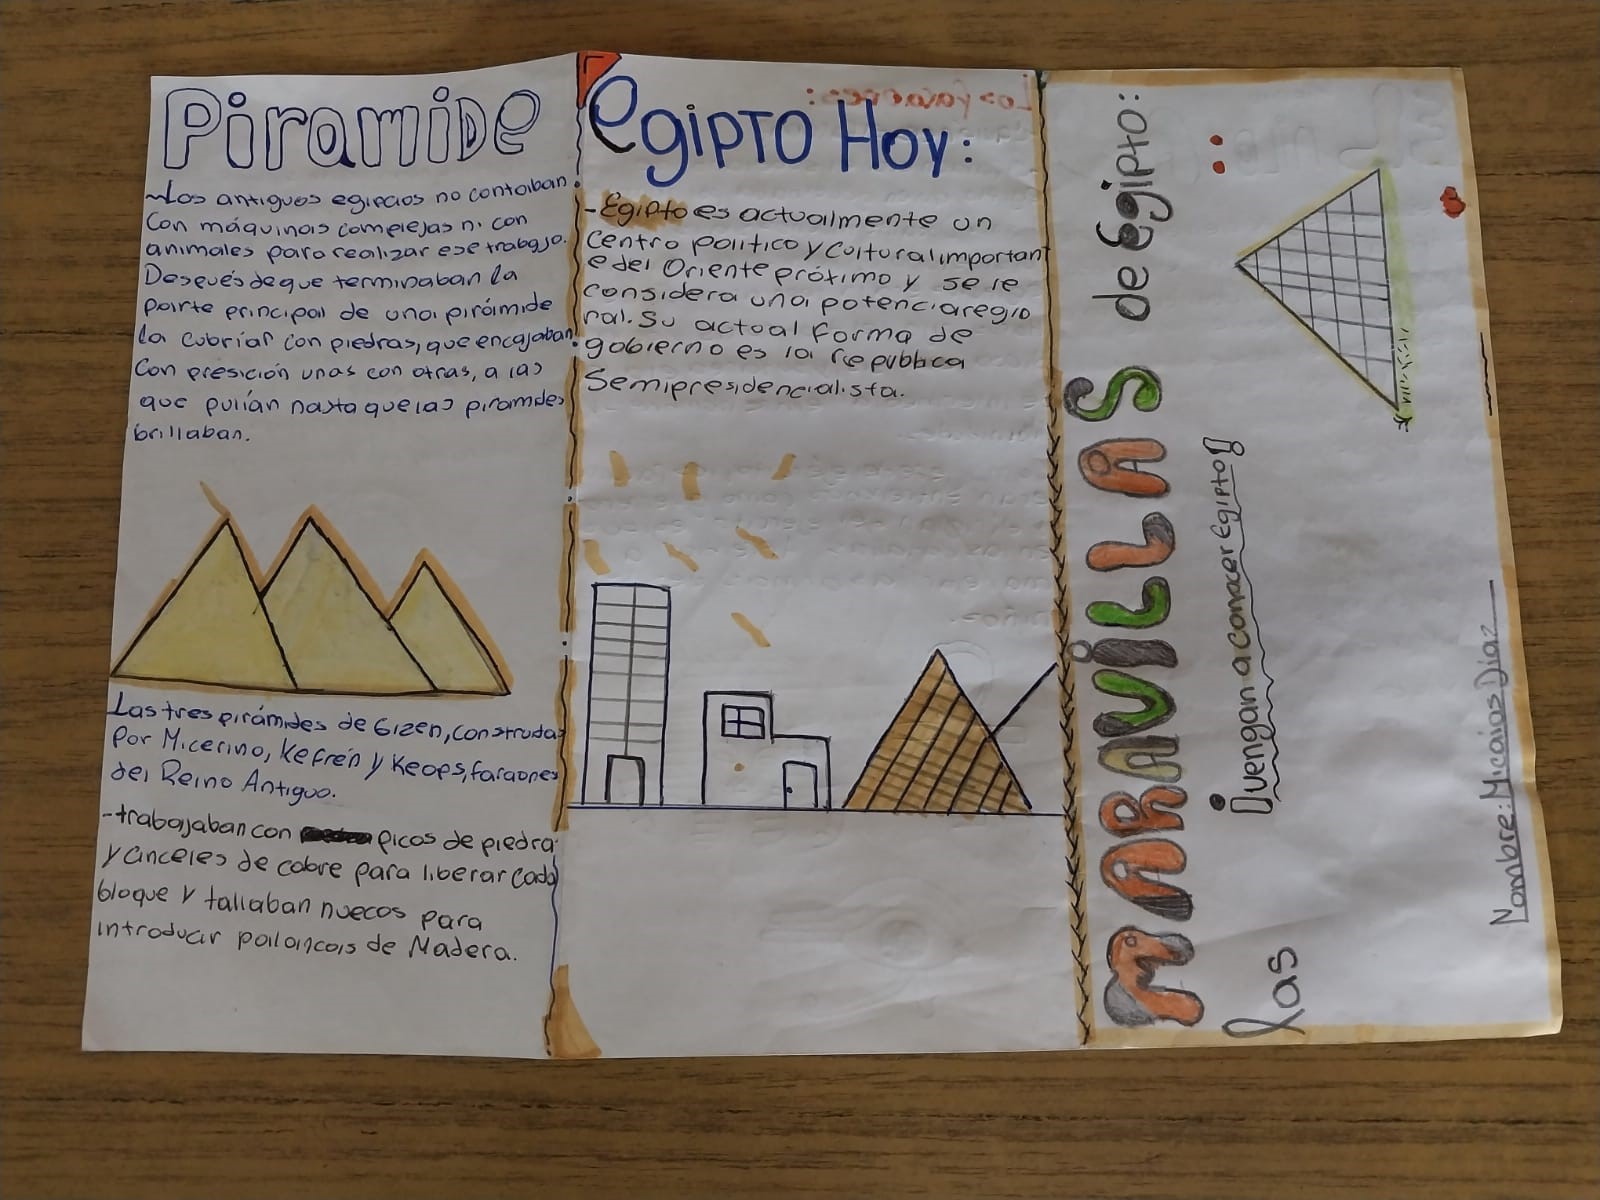 Piramide
~Los antiguos egipcios no contaban
Con máquinas complejas ni con
animales para realizar ese trabajo.
Después de que terminaban la
parte principal de una pirámide
la cubrían con piedras, que encajaban
Con presición unas con otras, a las
que pulían hasta que las piramides
brillaban.
Las tres pirámides de Gizen, construidas
Por Micerino, Kefrén y Keops, faraones
del Reino Antiguo.
-trabajaban con picos de piedra
y cinceles de cobre para liberar cada
bloque y tallaban huecos para
introducir palancas de Madera.
Egipto Hoy:
-Egipto es actualmente un
Centro político y cultural important
e del Oriente próximo y se le
considera una potencia regio
nal. Su actual forma de
gobierno es la republica
Semipresidencialista.
las
MARAVILLAS de Egipto:
¡vengan a conocer Egipto!
Nombre: Micaias Díaz